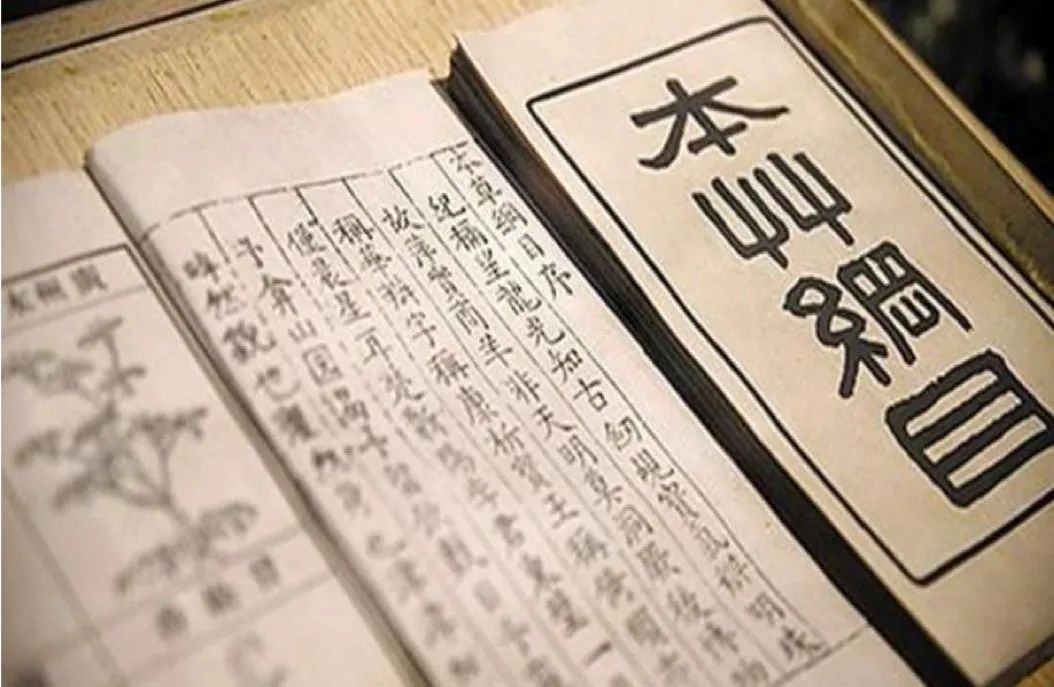 本艸綱目
本草綱目序
紀稱望龍光知古劍覘寶氣辨明珠
故萍實商羊非天明莫洞厥後博物
稱華辯字稱康析寶玉稱倚頓亦
僅晨星耳楚蘄陽李君東璧一
予弇山園謁予留飲數日予
睟然貌也癯然身也津津